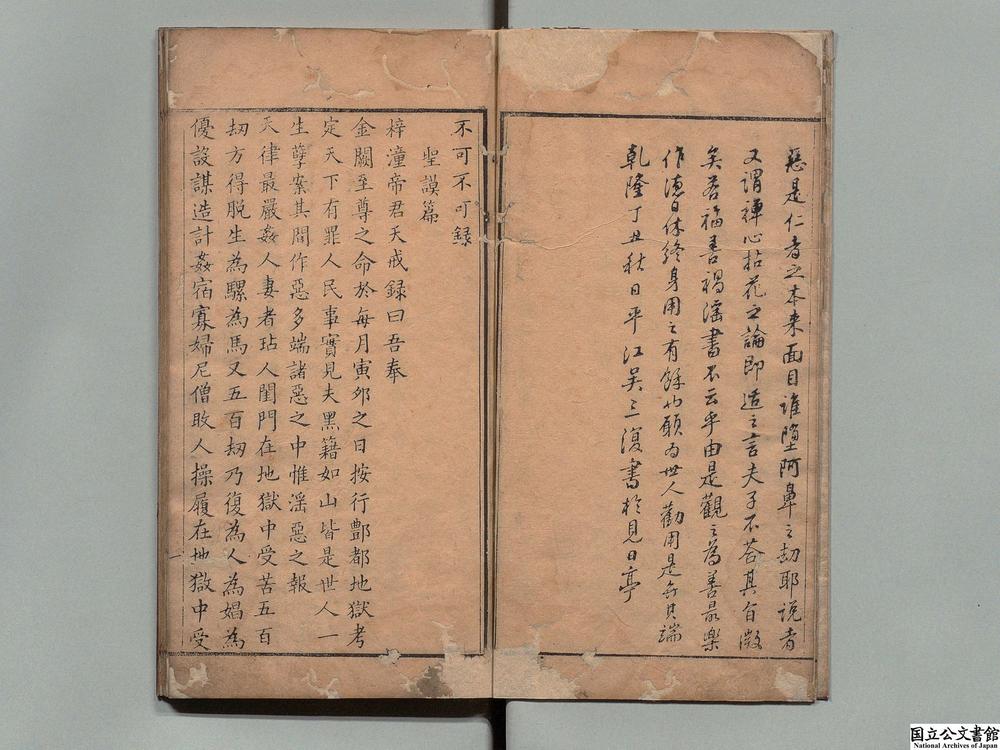 惡是仁者之本来面目誰墮阿鼻之劫耶説者
又謂禅心拈花之論即造之言夫子不荅其旨微
矣若福善禍淫書不云乎由是觀之為善最樂
作德日休終身用之有餘也願为世人勸用是弁其端
乾隆丁丑秋日平江吴三復書於見日亭
不可不可録
聖謨篇
梓潼帝君天戒録曰吾奉
金闕至尊之命於每月寅夘之日按行酆都地獄考
定天下有罪人民事實見夫黑籍如山皆是世人一
生孽案其間作惡多端諸惡之中惟淫惡之報
天律最嚴姦人妻者玷人閨門在地獄中受苦五百
刼方得脱生為騾為馬又五百刼乃復為人為娼為
優設謀造計姦宿寡婦尼僧敗人操履在地獄中受
一
国立公文書館
National Archives of Japan